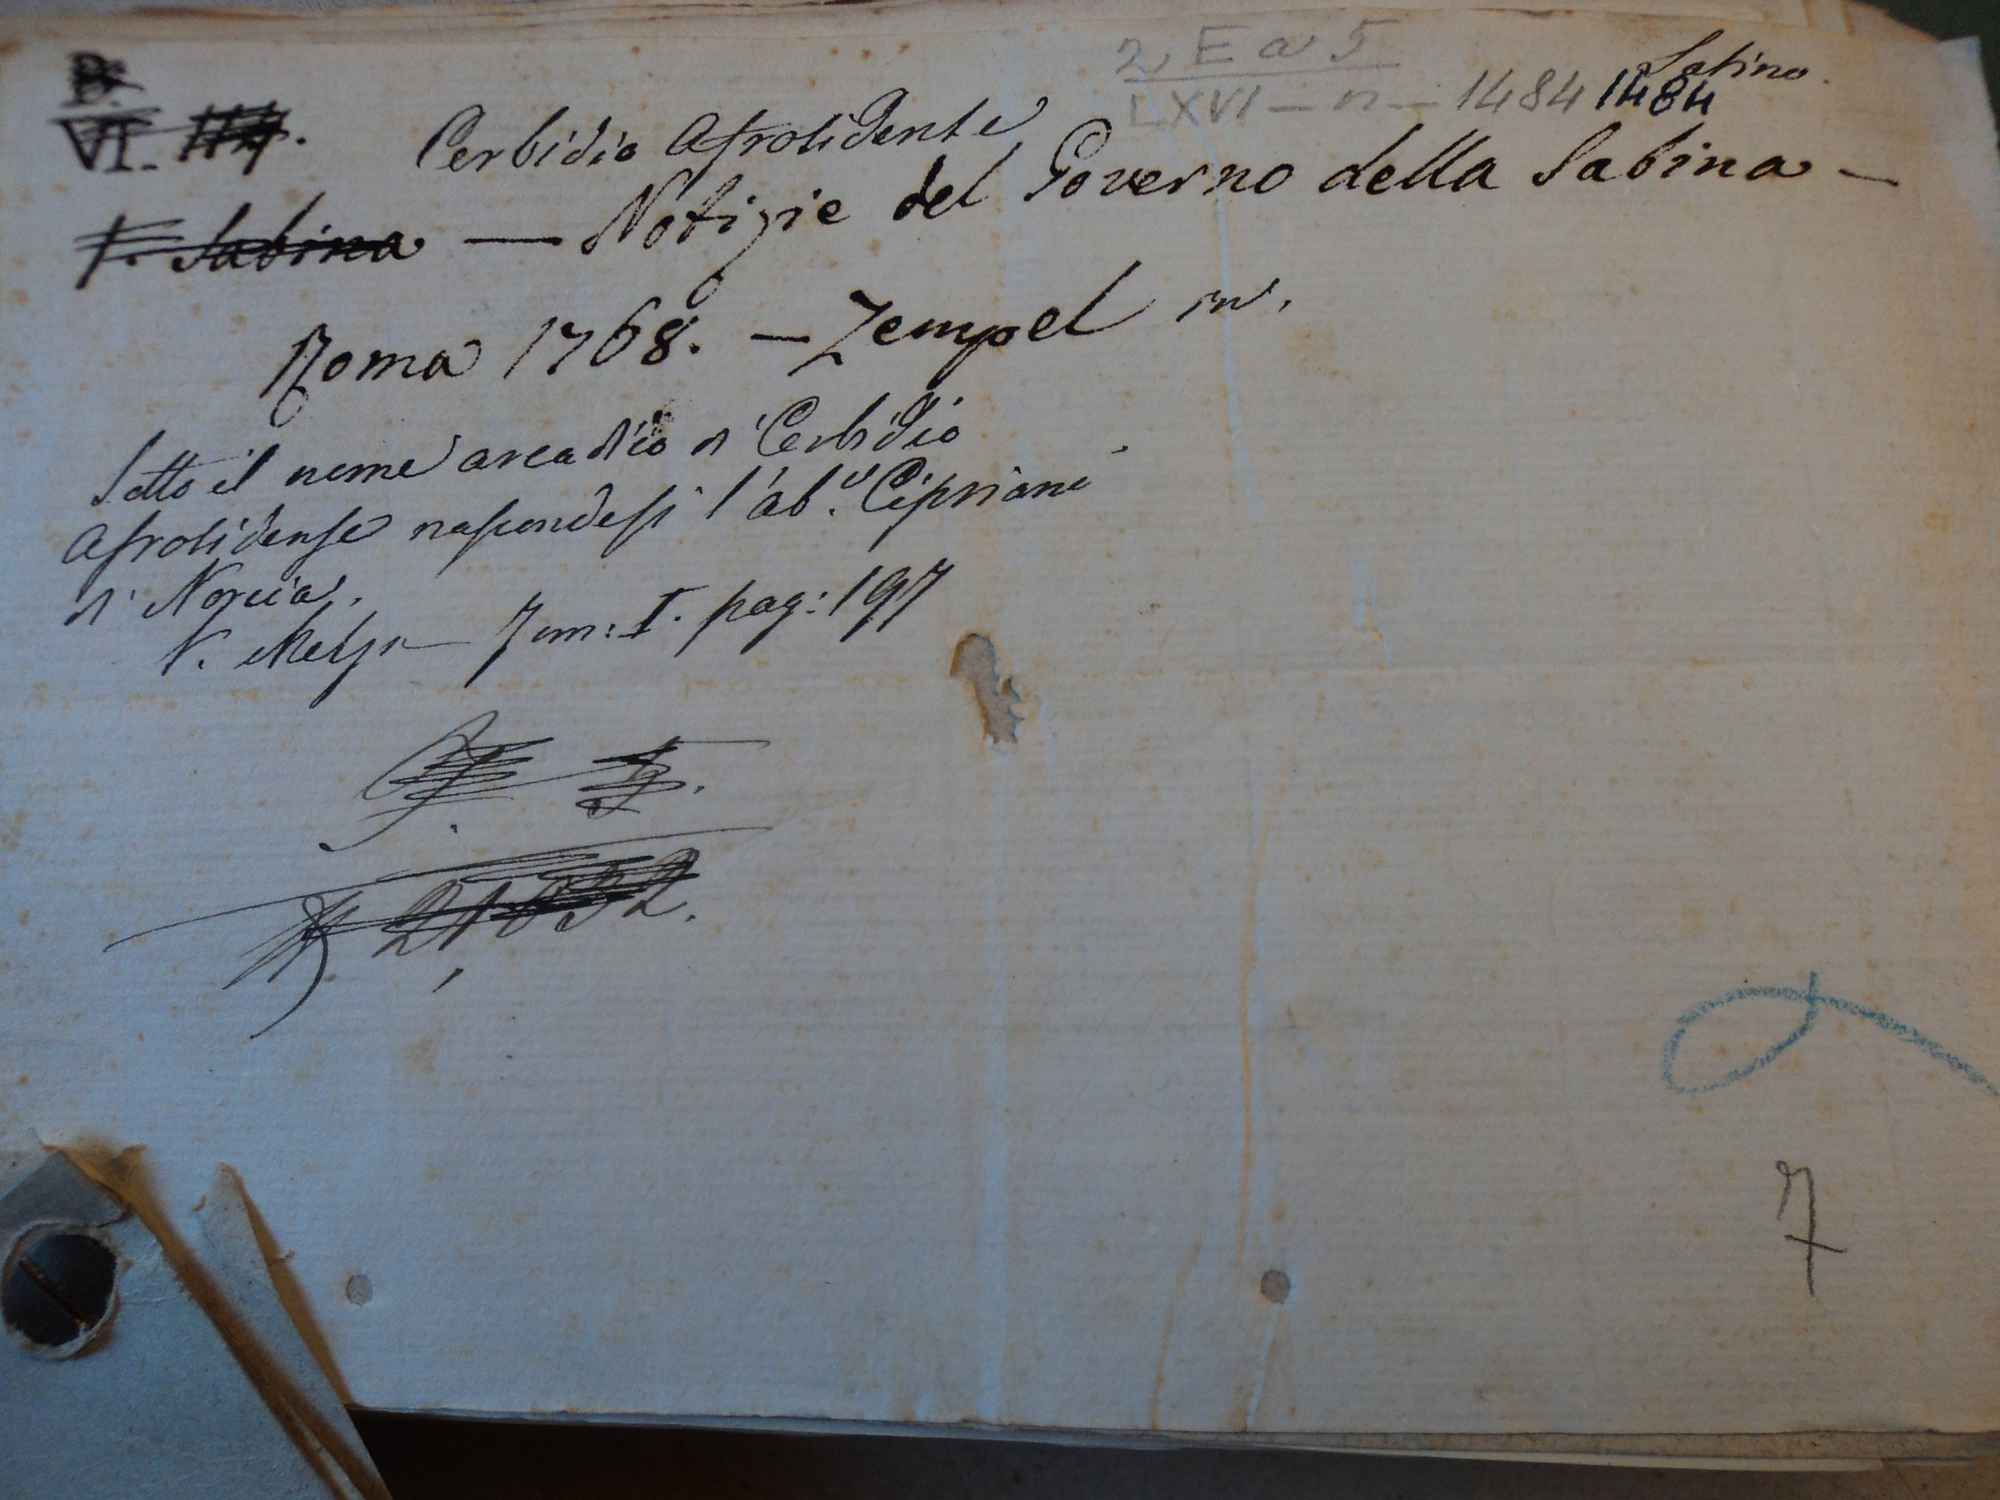 2 E a 5
Sabina.
LXVI - n - 1484 1484
B.
VI. 114.
Cerbidio Afrotidente
F. Sabina — Notizie del Governo della Sabina —
Roma 1768. — Zempel in
Sotto il nome arcadico di Cerbidio
Afrotidense nascondesi l'ab. Cipriani
di Norcia.
V. Melzi — Tom: I. pag: 197
21832.
7